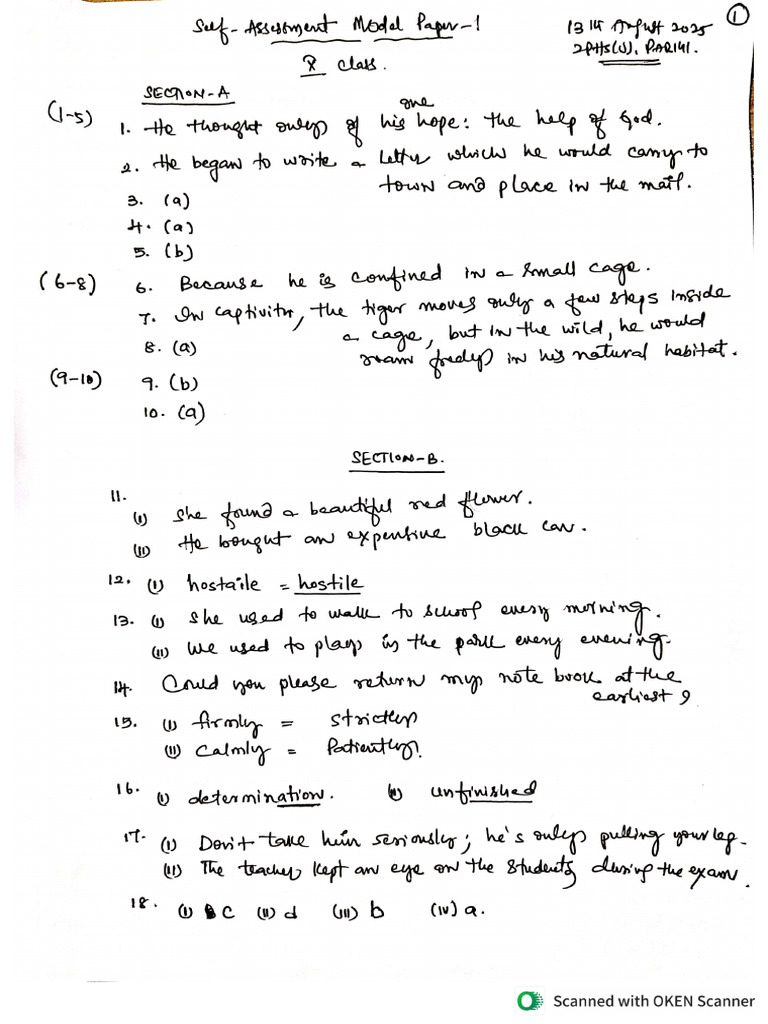 Self-Assessment Model Paper-1
13th August 2025
①
X class.
ZPHS(U), PARIGI.
SECTION-A
(1-5)
one
1. He thought only of his hope: the help of God.
2. He began to write a letter which he would carry to
town and place in the mail.
3. (a)
4. (a)
5. (b)
(6-8) 6. Because he is confined in a small cage.
7. In captivity, the tiger moves only a few steps inside
a cage, but in the wild, he would
8. (a)
roam freely in his natural habitat.
(9-10) 9. (b)
10. (a)
SECTION-B.
11.
(i) She found a beautiful red flower.
(ii) He bought an expensive black car.
12. (i) hostaile = hostile
13. (i) She used to walk to school every morning.
(ii) We used to play in the park every evening.
14. Could you please return my note book at the
earliest?
15. (i) firmly = strictly
(ii) calmly = Patiently.
16. (i) determination. (ii) unfinished
17. (i) Don't take him seriously; he's only pulling your leg.
(ii) The teacher kept an eye on the students during the exam.
18. (i) c (ii) d (iii) b (iv) a.
Scanned with OKEN Scanner